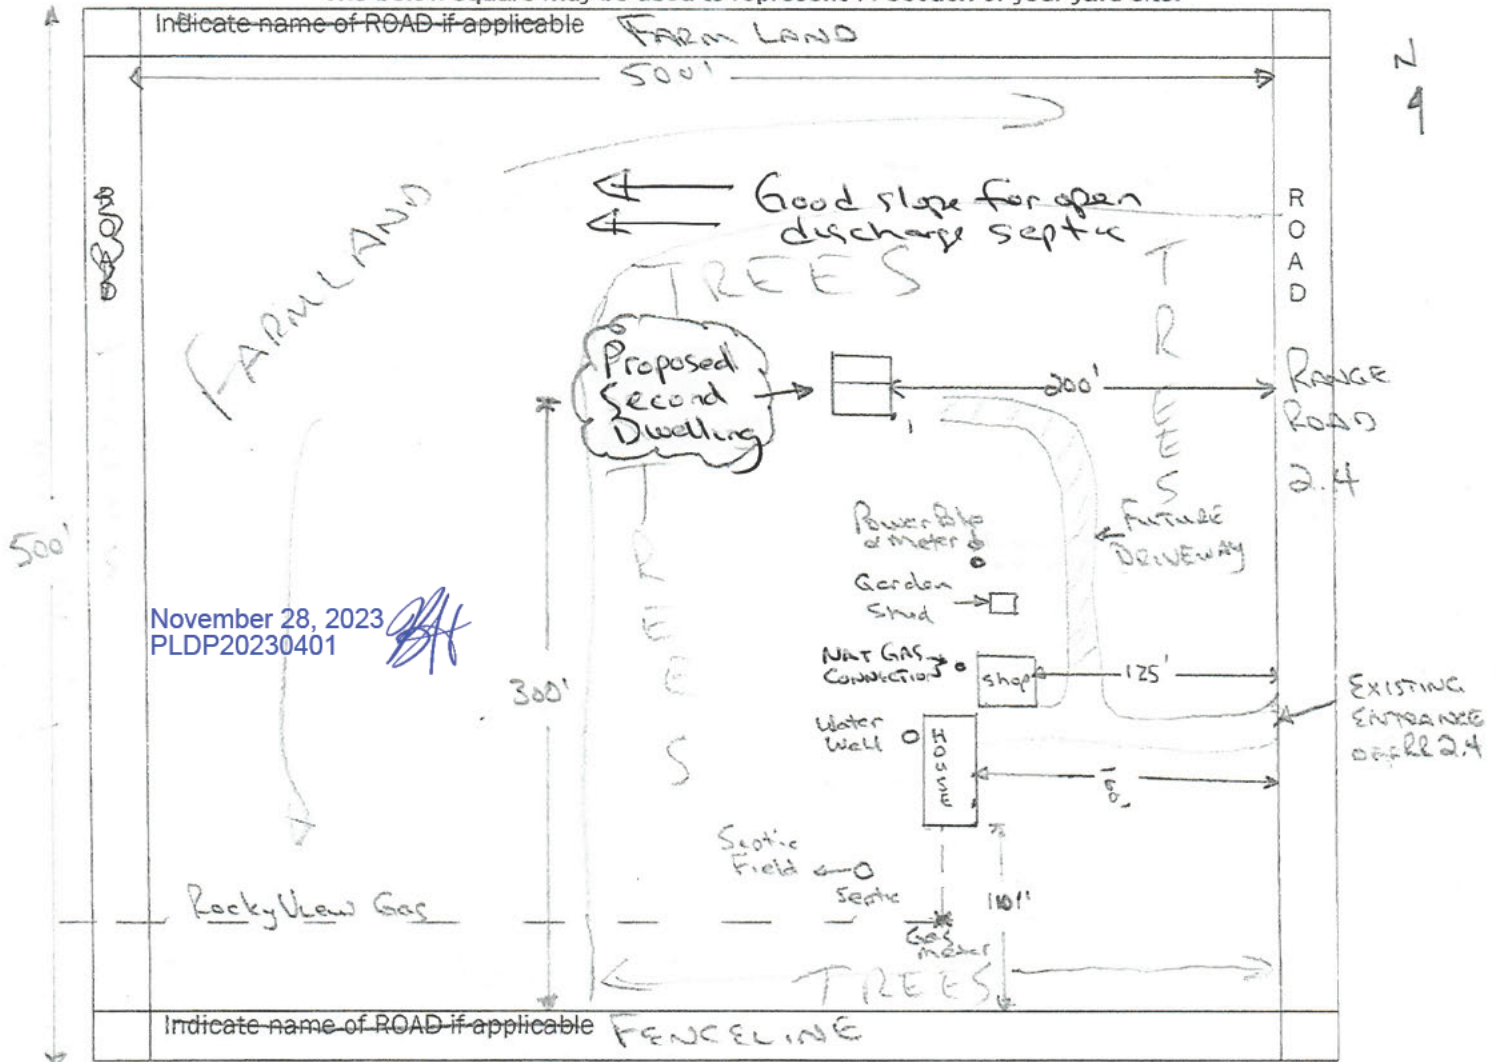 Indicate name of ROAD if applicable FARM LAND
500'
N
FARMLAND
Good slope for open
discharge septic
ROAD
TREES
TREES
Proposed
Second
Dwelling
200'
RANGE
ROAD
2.4
500'
Power Pole
& meter
FUTURE
DRIVEWAY
Garden
Shed
November 28, 2023
PLDP20230401
TREES
300'
NAT GAS
CONNECTION
shop
125'
EXISTING
ENTRANCE
OFF RR 2.4
Water
Well
HOUSE
Septic
Field
Septic
Rocky View Gas
Gas
meter
TREES
Indicate name of ROAD if applicable FENCELINE